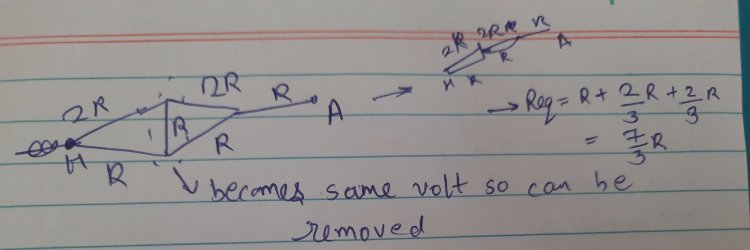 2R 2R R A
R R
H R
2R 2R R A
H R R
→ Req = R + 2/3 R + 2/3 R
= 7/3 R
becomes same volt so can be
removed